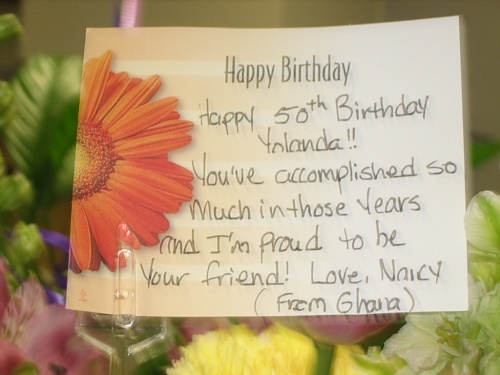 Happy Birthday
Happy 50th Birthday
Yolanda!!
You've accomplished so
Much in those Years
and I'm proud to be
Your friend! Love, Nancy
(From Ghana)